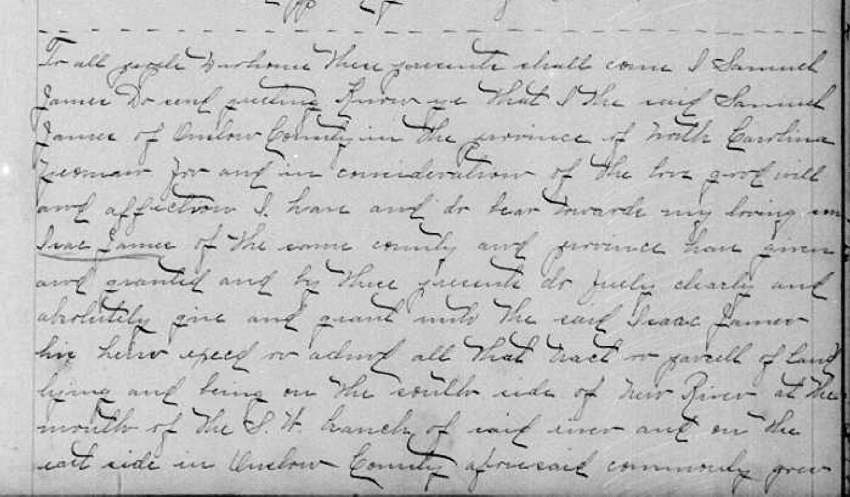 To all people to whome these presents shall come I Samuel
James Do send greeting Know ye that I the said Samuel
James of Onslow County in the province of North Carolina
Yeoman for and in consideration of the love good will
and affection I have and do bear towards my loving son
Isac James of the same county and province have given
and granted and by these presents do freely clearly and
absolutely give and grant unto the said Isaac James
his heirs execd or admd all that tract or parcell of land
lying and being on the south side of New River at the
mouth of the S. W. branch of said river and on the
east side in Onslow County aforesaid commonly